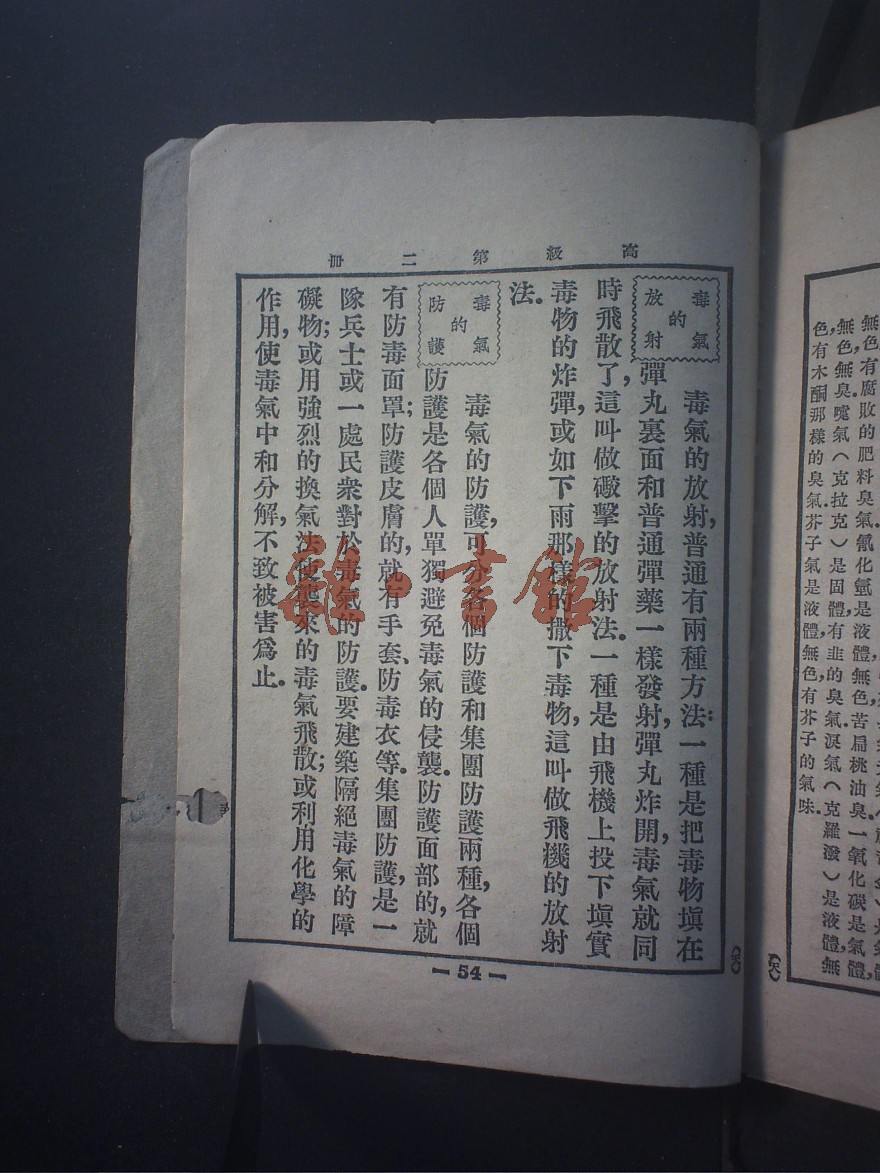 無色有腐敗的肥料臭氣.氰化氫是液體,無色苦扁桃油臭.一氧化碳是氣體,
無色,無臭.嚏氣(克拉克)是固體,有韭的臭氣.淚氣(克羅潑)是液體,無
色有木酮那樣的臭氣.芥子氣是液體,無色,有芥子的氣味.
高級第二冊
毒氣的放射
毒氣的放射,普通有兩種方法:一種是把毒物塡在
彈丸裏面和普通彈藥一樣發射,彈丸炸開,毒氣就同
時飛散了,這叫做礮擊的放射法.一種是由飛機上投下塡實
毒物的炸彈,或如下雨那樣的撒下毒物,這叫做飛機的放射
法.
毒氣的防護
毒氣的防護,可分各個防護和集團防護兩種,各個
防護是各個人單獨避免毒氣的侵襲.防護面部的,就
有防毒面罩;防護皮膚的,就有手套、防毒衣等.集團防護,是一
隊兵士或一處民衆對於毒氣的防護.要建築隔絕毒氣的障
礙物;或用強烈的換氣法使襲來的毒氣飛散;或利用化學的
作用,使毒氣中和分解,不致被害爲止.
— 54 —
雜·書館